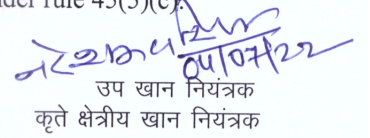 der rule 45(5)(c).
04/07/22
उप खान नियंत्रक
कृते क्षेत्रीय खान नियंत्रक